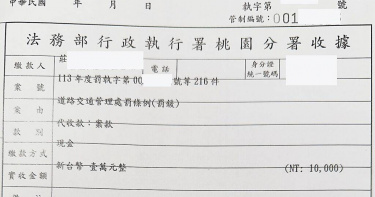 中華民國 年 月 日 執字第 號
管制編號：001
法務部行政執行署桃園分署收據
繳款人 莊 電話 身分證統一號碼
案號 113年度罰執字第00 號等216件
案由 道路交通管理處罰條例(罰鍰)
款別 代收款：案款
繳款方式 現金
實收金額 新台幣 壹萬元整 (NT: 10,000)